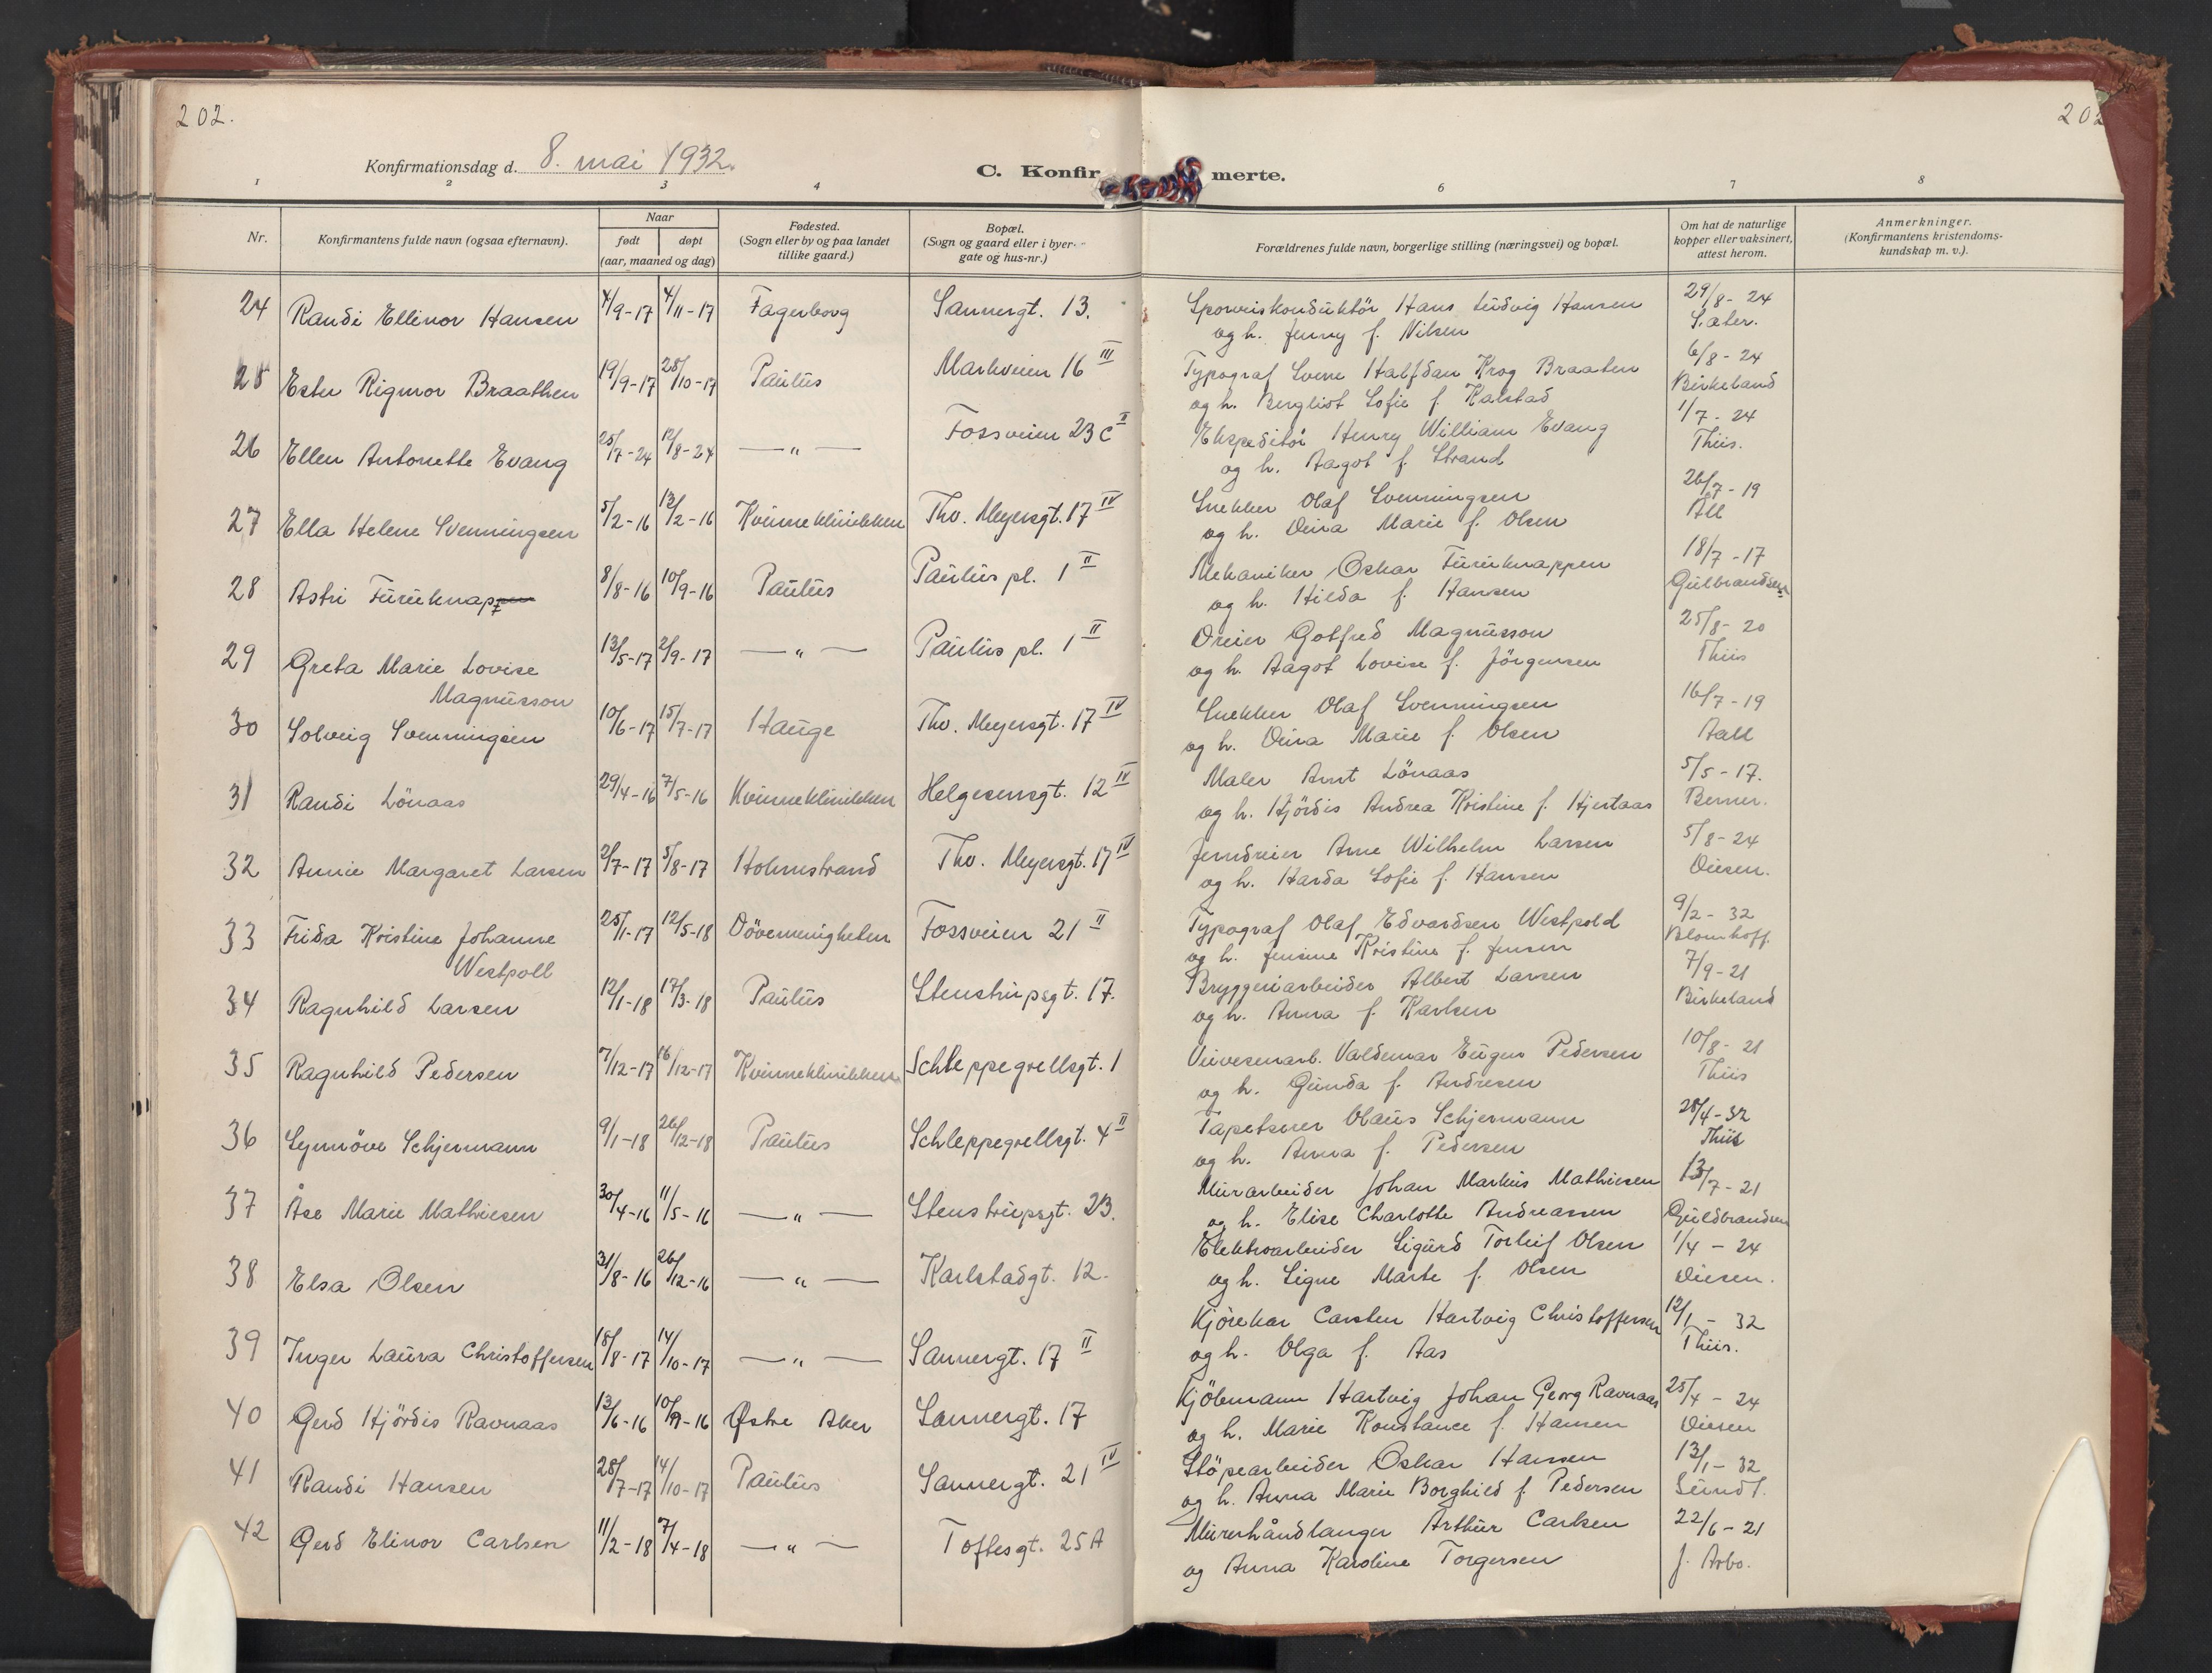 202.
202
Konfirmationsdag d. 8. mai 1932.
C. Konfir merte.
1 2 3 4 6 7 8
Nr.
Konfirmantens fulde navn (ogsaa efternavn).
Naar
født døpt
(aar, maaned og dag)
Fødested.
(Sogn eller by og paa landet
tillike gaard.)
Bopæl.
(Sogn og gaard eller i byer
gate og hus-nr.)
Forældrenes fulde navn, borgerlige stilling (næringsvei) og bopæl.
Om hat de naturlige
kopper eller vaksinert,
attest herom.
Anmerkninger.
(Konfirmantens kristendoms-
kundskap m. v.).
24 Randi Ellinor Hansen 4/9-17 4/11-17 Fagerborg Sannergt. 13. Sporveiskonduktör Hans Ludvig Hansen 29/8-24
og h. Jenny f. Nilsen Sæter.
25 Ester Rigmor Braathen 19/9-17 28/10-17 Paulus Markveien 16 III Typograf Sverre Halfdan Krog Braaten 6/8-24
og h. Bergliot Sofie f. Kalstad Birkeland
26 Ellen Antonette Evang 25/7-24 12/8-24 — " — Fossveien 23 c II Ekspeditör Henry William Evang 1/7-24
og h. Aagot f. Strand Thiis.
27 Ella Helene Svenningsen 5/2-16 13/2-16 Kvinneklinikken Thv. Meyersgt. 17 IV Snekker Olaf Svenningsen 26/7-19
og h. Oina Marie f. Olsen All
28 Astri Furuknappen 8/8-16 10/9-16 Paulus Paulus pl. 1 II Mekaniker Oskar Furuknappen 18/7-17
og h. Hilda f. Hansen Gulbrandsen
29 Greta Marie Lovise 13/5-17 2/9-17 — " — Paulus pl. 1 II Dreier Gotfred Magnusson 25/8-20
Magnusson og h. Aagot Lovise f. Jörgensen Thiis
30 Solveig Svenningsen 10/6-17 15/7-17 Hauge Thv. Meyersgt. 17 IV Snekker Olaf Svenningsen 16/7-19
og h. Oina Marie f. Olsen Aall
31 Randi Lönaas 29/4-16 7/5-16 Kvinneklinikken Helgesensgt. 12 IV Maler Arnt Lönaas 5/5-17.
og h. Hjördis Andrea Kristine f. Hjertaas Berner.
32 Annie Margaret Larsen 2/7-17 5/8-17 Holmestrand Thv. Meyersgt. 17 IV Jerndreier Arne Wilhelm Larsen 5/8-24
og h. Harda Sofie f. Hansen Diesen.
33 Frida Kristine Johanne 25/1-17 12/5-18 Dövemenigheten Fossveien 21 II Typograf Olaf Edvardsen Westpold 9/2-32
Westpoll og h. Jensine Kristine f. Jensen Blomhoff.
34 Ragnhild Larsen 12/1-18 17/3-18 Paulus Stenstrupsgt. 17. Bryggeriarbeider Albert Larsen 7/9-21
og h. Anna f. Karlsen Birkeland
35 Ragnhild Pedersen 7/12-17 16/12-17 Kvinneklinikken Schleppegrellsgt. 1 Veivesenarb. Valdemar Eugen Pedersen 10/8-21
og h. Gunda f. Andresen Thiis
36 Synnöve Schjermann 9/1-18 26/12-18 Paulus Schleppegrellsgt. 4 II Tapetserer Olaus Schjermann 28/4-32
og h. Anna f. Pedersen Thiis
37 Åse Marie Mathiesen 30/4-16 11/5-16 — " — Stenstrupsgt. 23. Murarbeider Johan Markus Mathiesen 13/7-21
og h. Elise Charlotte Andreassen Guldbrandsen
38 Elsa Olsen 31/8-16 26/12-16 — " — Karlstadgt. 12. Elektroarbeider Sigurd Torleif Olsen 1/4-24
og h. Signe Marte f. Olsen Diesen.
39 Inger Laura Christoffersen 18/8-17 14/10-17 — " — Sannergt. 17 II Kjörekar Carsten Hartvig Christoffersen 12/1-32
og h. Olga f. Aas Thiis.
40 Gerd Hjördis Ravnaas 13/6-16 10/9-16 Østre Aker Sannergt. 17 Kjöbmann Hartvig Johan Georg Ravnaas 25/4-24
og h. Marie Konstance f. Hansen Diesen
41 Randi Hansen 28/7-17 14/10-17 Paulus Sannergt. 21 IV Stöpearbeider Oskar Hansen 13/1-32
og h. Anna Marie Borghild f. Pedersen Sundt.
42 Gerd Elinor Carlsen 11/2-18 7/4-18 — " — Toftesgt. 25 A Murerhåndlanger Arthur Carlsen 22/6-21
og Anna Karoline Torgersen J. Arbo.